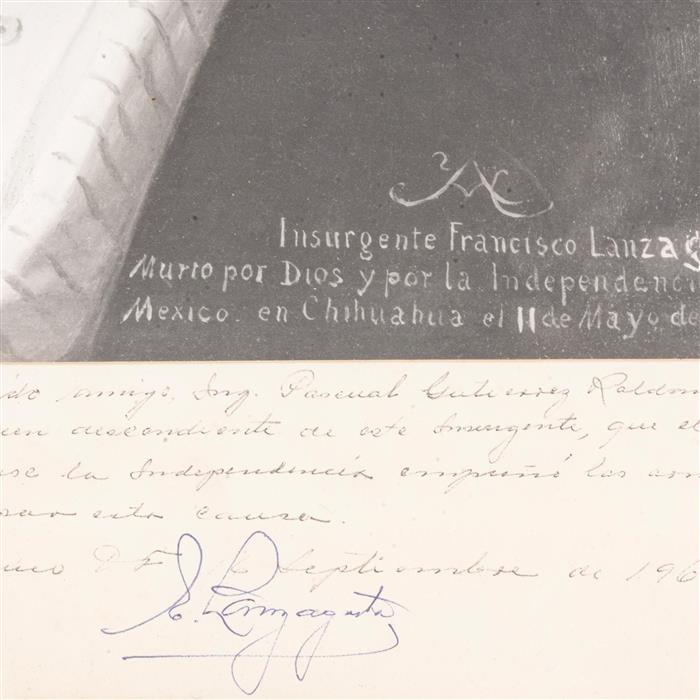 Insurgente Francisco Lanzag
Murio por Dios y por la Independenci
Mexico. en Chihuahua el 11 de Mayo de
ido amigo, Ing. Pascual Gutierrez Roldan
uen descendiente de este Insurgente, que el
ase la Independencia empuñó las arm
esta causa.
D.F. Septiembre de 196
E. Lanzagorta